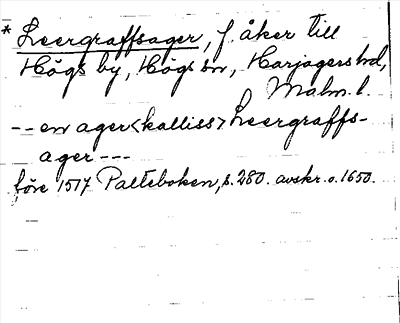 * Leergraffsager, f. åker till
Högs by, Högs sn, Harjagers hd,
Malm. l.
-- en ager <kalliss> Leergraffs-
ager ---
före 1517 Palteboken, s. 280. avskr. o. 1650.